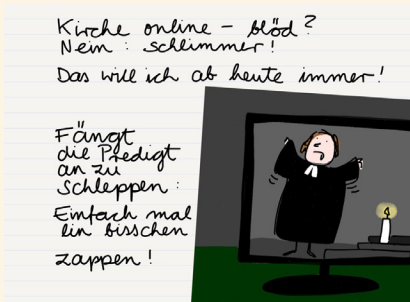 Kirche online – blöd?
Nein: schlimmer!
Das will ich ab heute immer!
Fängt
die Predigt
an zu
schleppen:
Einfach mal
ein bisschen
zappen!